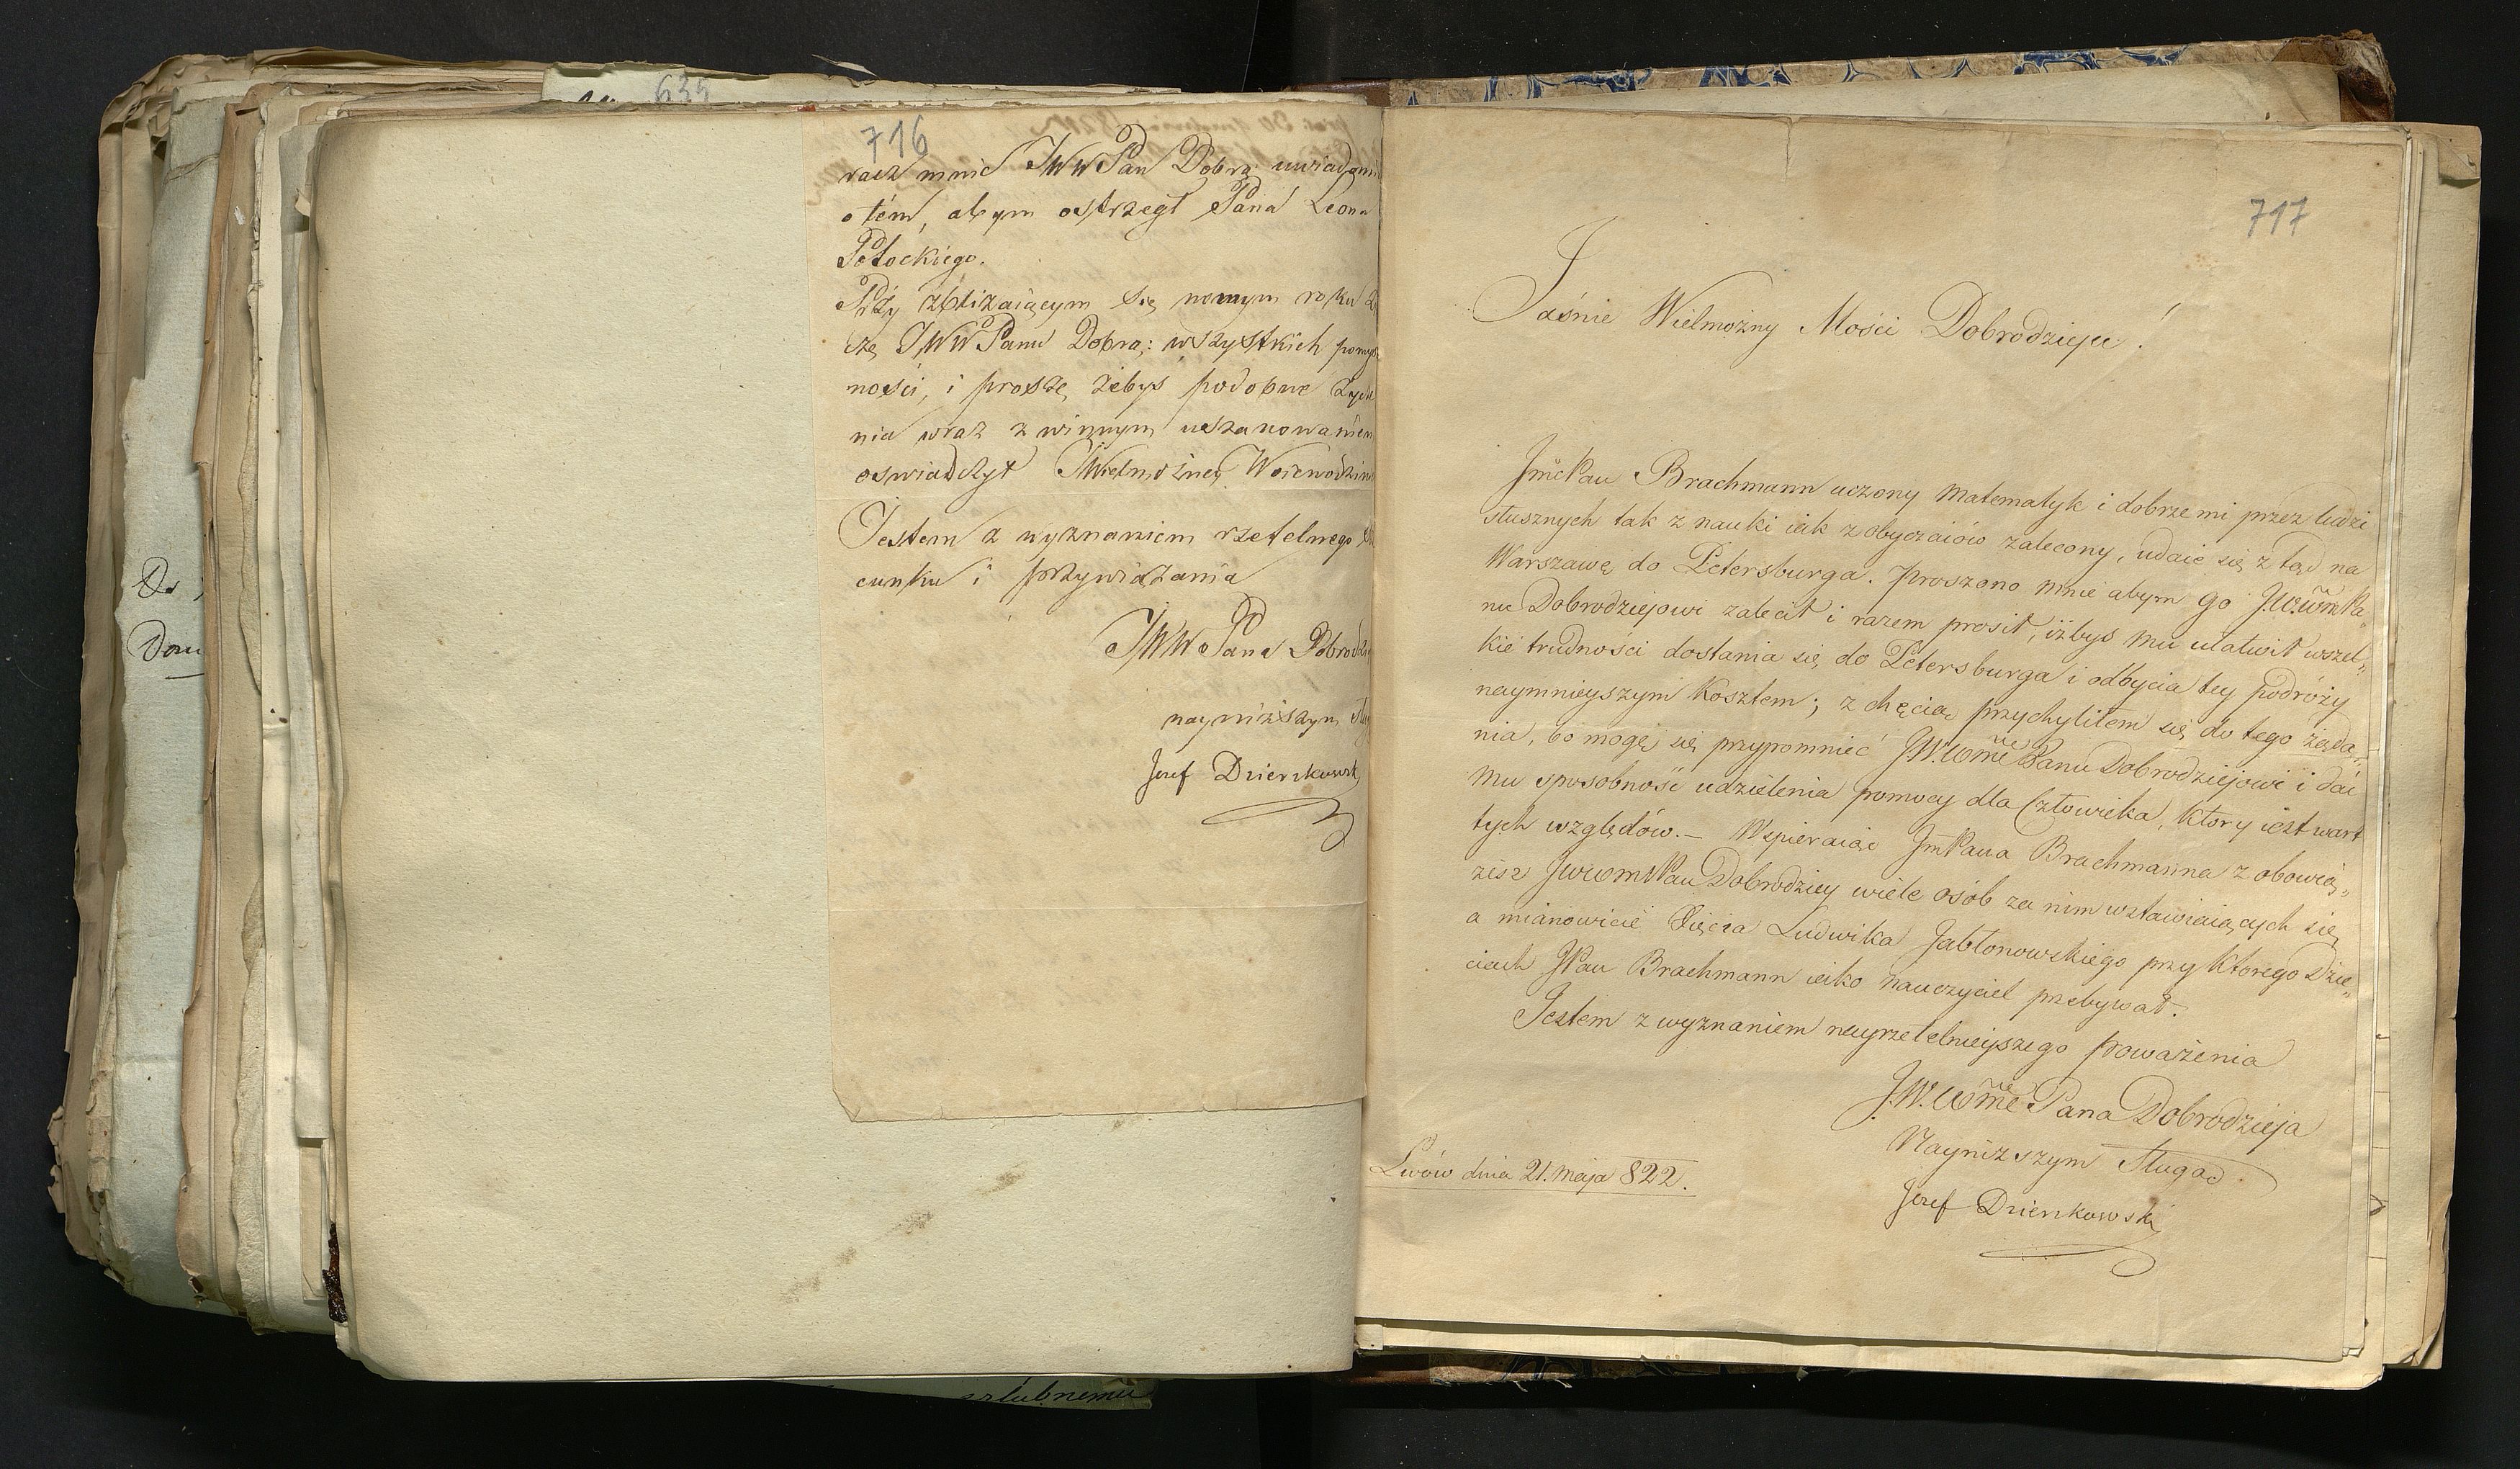 635
716
racz mnie JWW Pan Dobrz: uwiadomi
o tém, abym ostrzegł Pana Leona
Potockiego.
Przy zbliżaiącym się nowym roku
czę JWW Panu Dobro: wszystkich pomyśl
ności, i proszę, żebyś podobne życze
nia wraz z winnym uszanowaniem
oswiadczył JWielmożney Woiewodzin
Jestem z wyznaniem rzetelnego
cunku i przywiązania
JWW Pana Dobrodzi
nayniższym słu
Jozef Dzierzkowski
Do
Dom
szlubnemu
717
Jaśnie Wielmożny Mości Dobrodzieju!
JmćPan Brachmann uczony Matematyk i dobrze mi przez ludzi
słusznych tak z nauki iak z obyczaiów zalecony, udaie się z tąd na
Warszawę do Petersburga. Proszono mnie abym go JWWm Pa„
nu Dobrodziejowi zalecił i razem prosił, iżbyś mu ułatwił wszel„
kie trudności dostania się do Petersburga i odbycia tey podróży
naymnieyszym Kosztem; z chęcią przychyliłem się do tego żąda„
nia, bo mogę się przypomnieć JW.Wme Panu Dobrodziejowi i dać
Mu sposobność udzielenia pomocy dla Człowieka, który iest wart
tych względów.— Wspieraiąc JmPana Brachmanna zobowią„
żesz JWWmPan Dobrodziey wiele osób za nim wstawiaiących się,
a mianowicie Xięcia Ludwika Jabłonowskiego przy Którego Dzie„
ciach JPan Brachmann iako nauczyciel przebywał.
Jestem z wyznaniem nayrzetelnieyszego poważenia
J.W.Wme Pana Dobrodzieja
Nayniższym Sługą
Lwów dnia 21. Maja 822.
Jozef Dzierzkowski